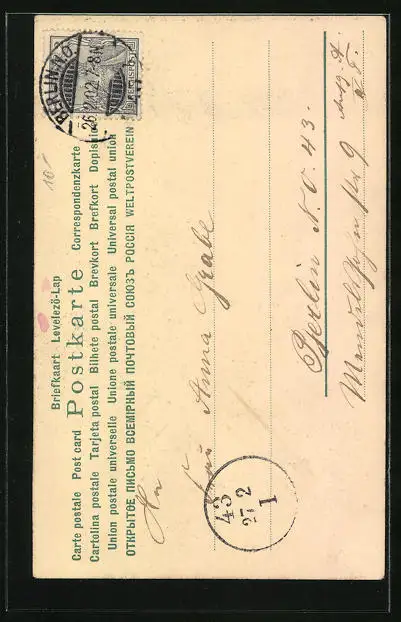 Briefkaart Levelező-Lap
Carte postale Post card Postkarte Correspondenzkarte
Cartolina postale Tarjeta postal Bilhete postal Brevkort Brefkort Dopisnice
Union postale universelle Unione postale universale Universal postal union
ОТКРЫТОЕ ПИСЬМО ВСЕМІРНЫЙ ПОЧТОВЫЙ СОЮЗЪ РОССІЯ WELTPOSTVEREIN
10.-
BERLIN NO
26 2 02 7-8N
An
Anna Grabe
Berlin N. O. 43.
9
43
27 2
1